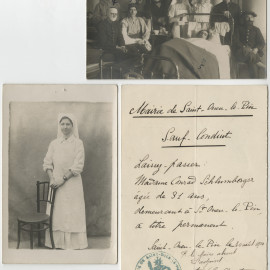 Mairie de Saint-Ouen-le-Pin
Sauf-Conduit
Laissez-passer
Madame Conrad Schlumberger
agée de 31 ans,
Demeurant à St Ouen-le-Pin,
à titre permanent.
Saint-Ouen-le-Pin